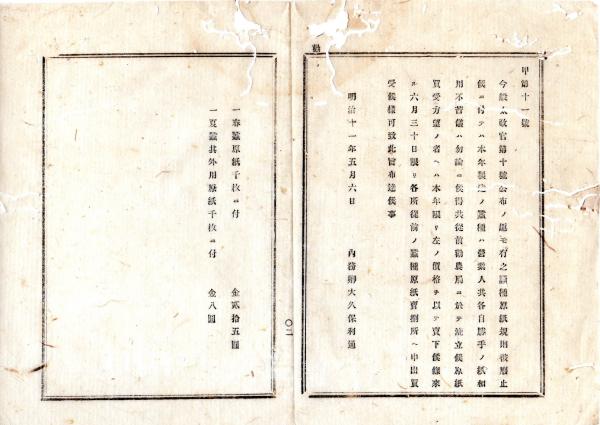 勸
甲第十一號
今般太政官第十號公布ノ趣モ有之蠶種原紙規則被廢止
候ニ付テハ本年製造ノ蠶種ハ營業人共各自勝手ノ紙相
用不苦儀ハ勿論ニ候得共從前勸農局ニ於テ流立候原紙
買受方望ノ者ヘハ本年限リ左ノ價格ヲ以テ賣下候條來
ル六月三十日限リ各所從前ノ蠶種原紙賣捌所ヘ申出買
受候樣可致此旨布達候事
明治十一年五月六日 內務卿大久保利通
〇二
一春蠶原紙千枚ニ付 金貳拾五圓
一夏蠶其外用原紙千枚ニ付 金八圓